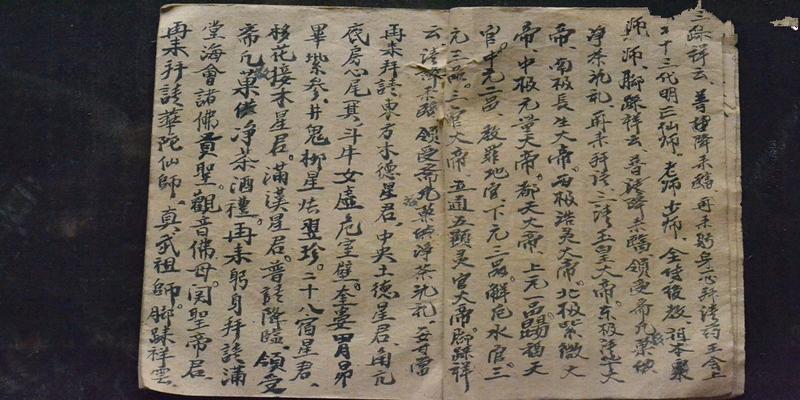 踩祥云、普請降來臨、再來躬身一心拜請藥王会上
二十三代明正仙师、老师士师、全侍後教、祖本衆
师师、脚踩祥云、普請降來臨領受斋凡菓供
净茶洗礼、再来拜請、三清玉皇大帝。东极
帝、南极長生大帝。西极浩灵大帝。北极紫微大
帝、中极元堂天帝。都天大帝、上元一品賜福天
官。中元二品、赦罪地官、下元三品解厄水官。三
元三品。三官大帝、五通五顕灵官大帝。脚踩祥
云請降來臨領受斋凡菓供净茶洗礼
再来拜請東方木德星君、中央土德星君、角亢
氐房心尾箕。斗牛女虛危室壁。奎婁胃昴
畢紫参。井鬼柳星张翌珍。二十八宿星君、
移花接木星君。滿漢星君。普請降臨、領受
斋凡菓供净茶酒禮。再来躬身拜請滿
堂海會諸佛賢聖。觀音佛母。関聖帝君
再来拜請華陀仙師。真武祖師。脚踩祥雲